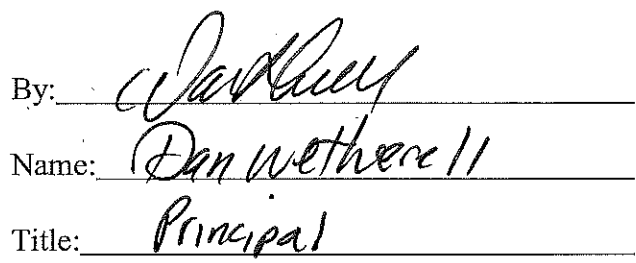 By:
Name: Dan Wetherell
Title: Principal